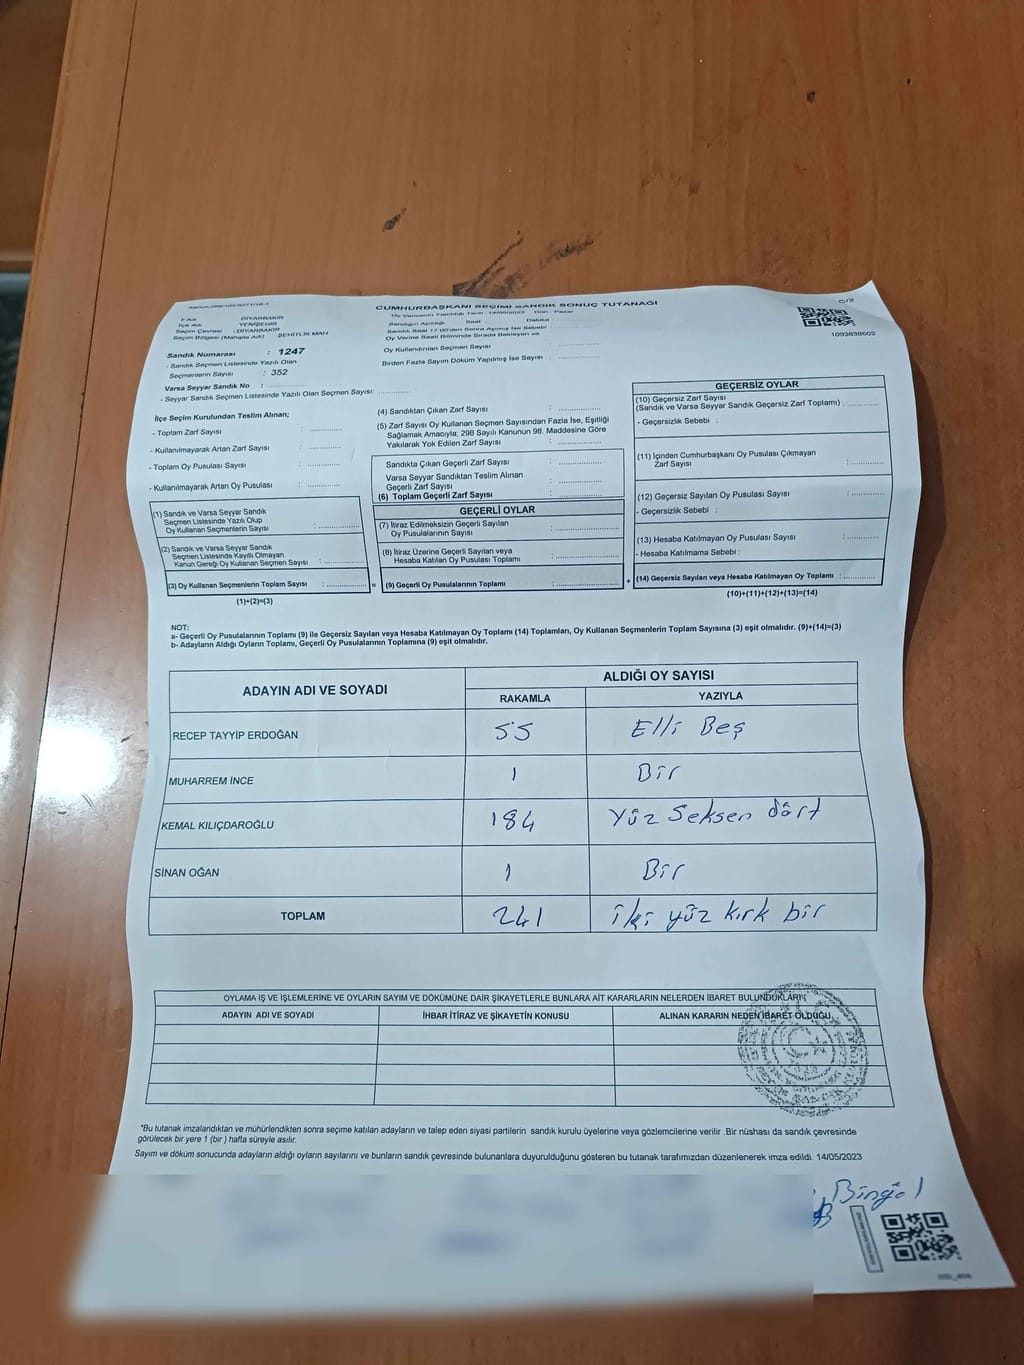 C/2
CUMHURBAŞKANI SEÇİMİ SANDIK SONUÇ TUTANAĞI
1093838602
İl Adı DİYARBAKIR
İlçe Adı YENİŞEHİR
Seçim Çevresi : DİYARBAKIR
Seçim Bölgesi (Mahalle Adı) ŞEHİTLİK MAH
Sandık Numarası : 1247
- Sandık Seçmen Listesinde Yazılı Olan
Seçmenlerin Sayısı : 352
Varsa Seyyar Sandık No :
- Seyyar Sandık Seçmen Listesinde Yazılı Olan Seçmen Sayısı:
Oy Vermenin Yapıldığı Tarih : 14/05/2023 Gün : Pazar
Sandığın Açıldığı Saat Dakika
Sandık Saat 17.00'den Sonra Açılmış İse Sebebi
Oy Verme Saati Bitiminde Sırada Bekleyen ve
Oy Kullandırılan Seçmen Sayısı :
Birden Fazla Sayım Döküm Yapılmış İse Sayısı :
İlçe Seçim Kurulundan Teslim Alınan;
- Toplam Zarf Sayısı :
- Kullanılmayarak Artan Zarf Sayısı :
- Toplam Oy Pusulası Sayısı :
- Kullanılmayarak Artan Oy Pusulası :
(1) Sandık ve Varsa Seyyar Sandık
Seçmen Listesinde Yazılı Olup
Oy Kullanan Seçmenlerin Sayısı :
(2) Sandık ve Varsa Seyyar Sandık
Seçmen Listesinde Kayıtlı Olmayan
Kanun Gereği Oy Kullanan Seçmen Sayısı :
(3) Oy Kullanan Seçmenlerin Toplam Sayısı : =
(1)+(2)=(3)
(4) Sandıktan Çıkan Zarf Sayısı :
(5) Zarf Sayısı Oy Kullanan Seçmen Sayısından Fazla İse, Eşitliği
Sağlamak Amacıyla; 298 Sayılı Kanunun 98. Maddesine Göre
Yakılarak Yok Edilen Zarf Sayısı :
Sandıkta Çıkan Geçerli Zarf Sayısı :
Varsa Seyyar Sandıktan Teslim Alınan
Geçerli Zarf Sayısı :
(6) Toplam Geçerli Zarf Sayısı :
GEÇERLİ OYLAR
(7) İtiraz Edilmeksizin Geçerli Sayılan
Oy Pusulalarının Sayısı :
(8) İtiraz Üzerine Geçerli Sayılan veya
Hesaba Katılan Oy Pusulası Toplamı :
(9) Geçerli Oy Pusulalarının Toplamı : +
GEÇERSİZ OYLAR
(10) Geçersiz Zarf Sayısı
(Sandık ve Varsa Seyyar Sandık Geçersiz Zarf Toplamı) :
- Geçersizlik Sebebi :
(11) İçinden Cumhurbaşkanı Oy Pusulası Çıkmayan
Zarf Sayısı :
(12) Geçersiz Sayılan Oy Pusulası Sayısı :
- Geçersizlik Sebebi :
(13) Hesaba Katılmayan Oy Pusulası Sayısı :
- Hesaba Katılmama Sebebi :
(14) Geçersiz Sayılan veya Hesaba Katılmayan Oy Toplamı :
(10)+(11)+(12)+(13)=(14)
NOT:
a- Geçerli Oy Pusulalarının Toplamı (9) ile Geçersiz Sayılan veya Hesaba Katılmayan Oy Toplamı (14) Toplamları, Oy Kullanan Seçmenlerin Toplam Sayısına (3) eşit olmalıdır. (9)+(14)=(3)
b- Adayların Aldığı Oyların Toplamı, Geçerli Oy Pusulalarının Toplamına (9) eşit olmalıdır.
ADAYIN ADI VE SOYADI ALDIĞI OY SAYISI
RAKAMLA YAZIYLA
RECEP TAYYİP ERDOĞAN 55 Elli Beş
MUHARREM İNCE 1 Bir
KEMAL KILIÇDAROĞLU 184 Yüz Seksen dört
SİNAN OĞAN 1 Bir
TOPLAM 241 iki yüz kırk bir
OYLAMA İŞ VE İŞLEMLERİNE VE OYLARIN SAYIM VE DÖKÜMÜNE DAİR ŞİKAYETLERLE BUNLARA AİT KARARLARIN NELERDEN İBARET BULUNDUKLARI;
ADAYIN ADI VE SOYADI İHBAR İTİRAZ VE ŞİKAYETİN KONUSU ALINAN KARARIN NEDEN İBARET OLDUĞU
*Bu tutanak imzalandıktan ve mühürlendikten sonra seçime katılan adayların ve talep eden siyasi partilerin sandık kurulu üyelerine veya gözlemcilerine verilir .Bir nüshası da sandık çevresinde
görülecek bir yere 1 (bir ) hafta süreyle asılır.
Sayım ve döküm sonucunda adayların aldığı oyların sayılarını ve bunların sandık çevresinde bulunanlara duyurulduğunu gösteren bu tutanak tarafımızdan düzenlenerek imza edildi. 14/05/2023
Bingöl